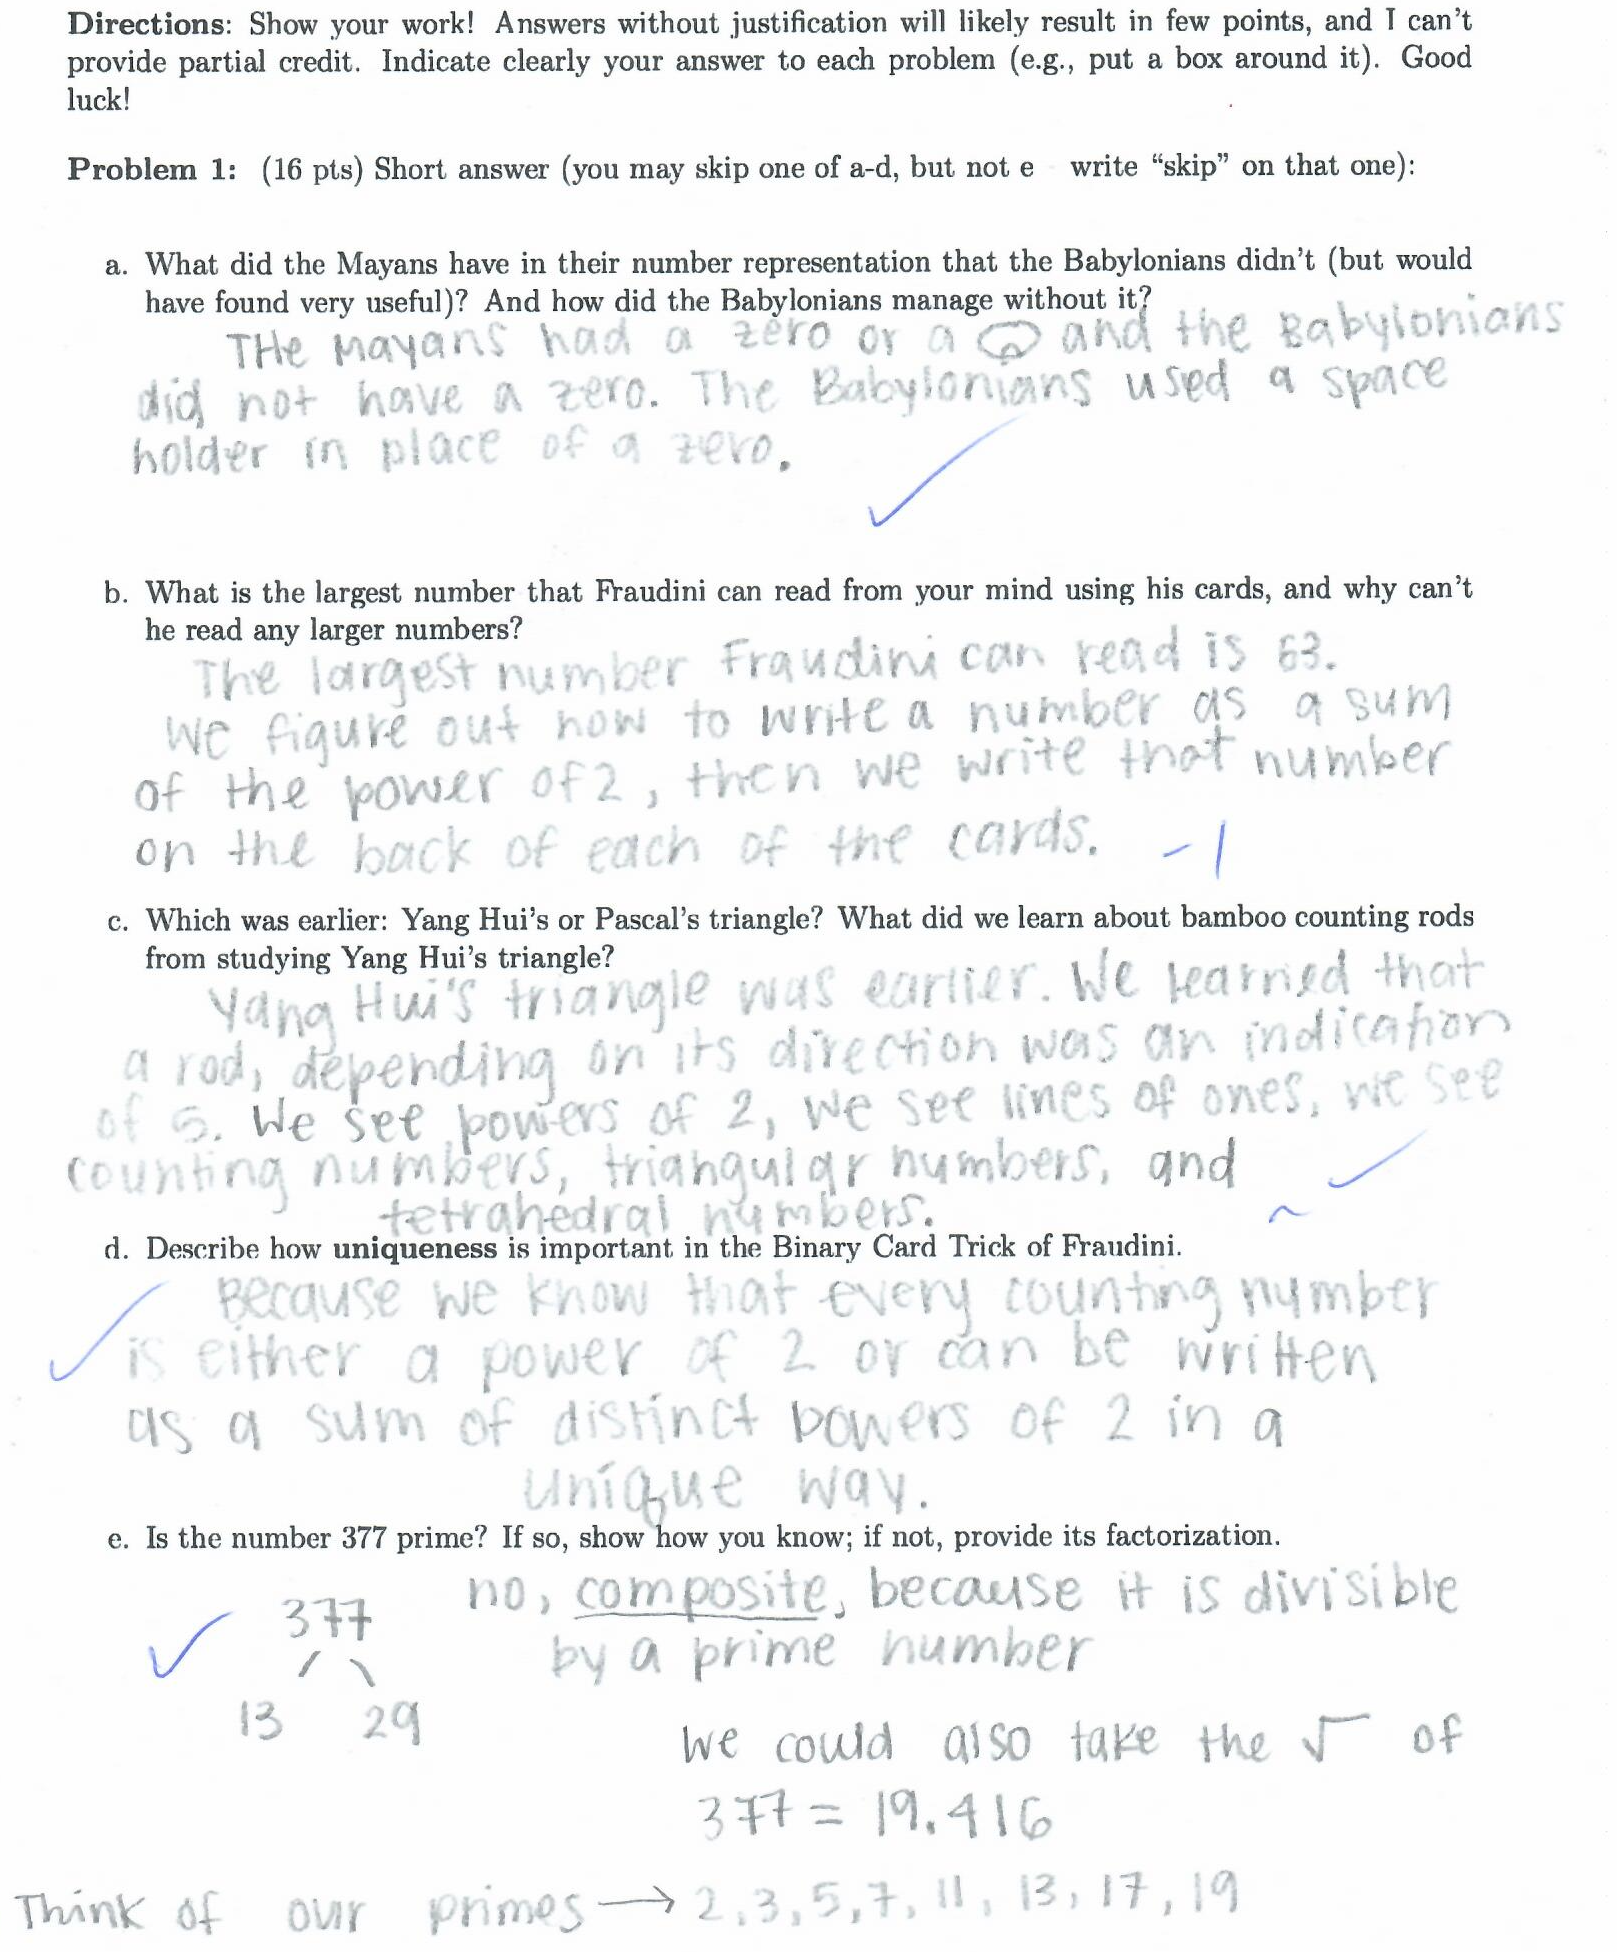 Directions: Show your work! Answers without justification will likely result in few points, and I can't
provide partial credit. Indicate clearly your answer to each problem (e.g., put a box around it). Good
luck!
Problem 1: (16 pts) Short answer (you may skip one of a-d, but not e write “skip” on that one):
a. What did the Mayans have in their number representation that the Babylonians didn't (but would
have found very useful)? And how did the Babylonians manage without it?
THe Mayans had a zero or a and the Babylonians
did not have a zero. The Babylonians used a space
holder in place of a zero.
b. What is the largest number that Fraudini can read from your mind using his cards, and why can't
he read any larger numbers?
The largest number Fraudini can read is 63.
We figure out how to write a number as a sum
of the power of 2, then we write that number
on the back of each of the cards. -1
c. Which was earlier: Yang Hui's or Pascal's triangle? What did we learn about bamboo counting rods
from studying Yang Hui's triangle?
Yang Hui's triangle was earlier. We learned that
a rod, depending on its direction was an indication
of 5. We see powers of 2, we see lines of ones, we see
counting numbers, triangular numbers, and
tetrahedral numbers. ~
d. Describe how uniqueness is important in the Binary Card Trick of Fraudini.
Because we know that every counting number
is either a power of 2 or can be written
as a sum of distinct powers of 2 in a
unique way.
e. Is the number 377 prime? If so, show how you know; if not, provide its factorization.
no, composite, because it is divisible
by a prime number
377
13 29
We could also take the √ of
377 = 19.416
Think of our primes → 2,3,5,7,11,13,17,19